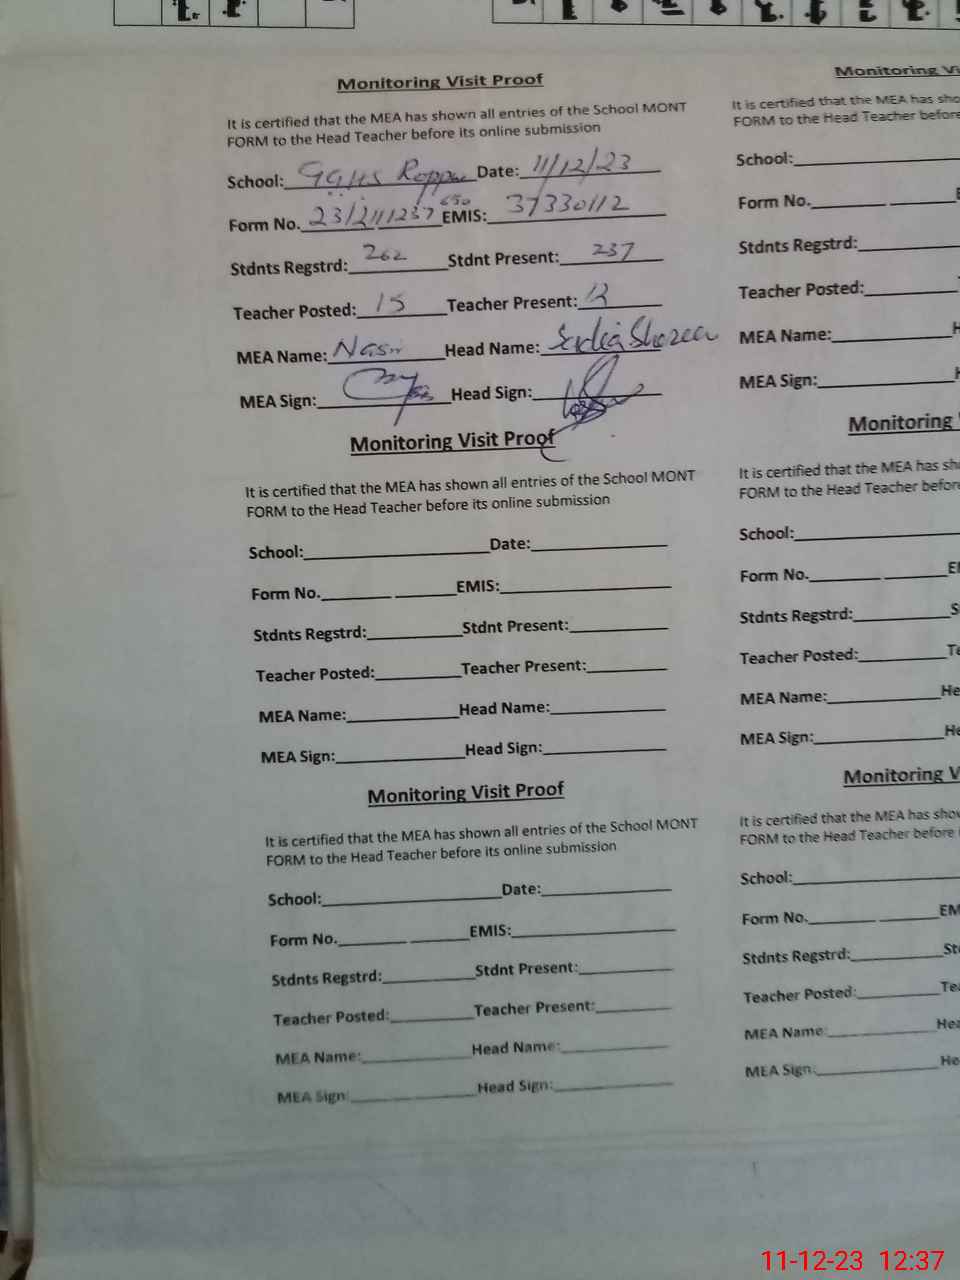 Monitoring Visit Proof
It is certified that the MEA has shown all entries of the School MONT
FORM to the Head Teacher before its online submission
School: GGHS Date: 11/12/23
Form No. EMIS: 37330112
Stdnts Regstrd: 262 Stdnt Present: 237
Teacher Posted: 15 Teacher Present:
MEA Name: Nasir Head Name: Sadia
MEA Sign: Head Sign:
Monitoring Visit Proof
It is certified that the MEA has shown all entries of the School MONT
FORM to the Head Teacher before its online submission
School: Date:
Form No. EMIS:
Stdnts Regstrd: Stdnt Present:
Teacher Posted: Teacher Present:
MEA Name: Head Name:
MEA Sign: Head Sign:
Monitoring Visit Proof
It is certified that the MEA has shown all entries of the School MONT
FORM to the Head Teacher before its online submission
School: Date:
Form No. EMIS:
Stdnts Regstrd: Stdnt Present:
Teacher Posted: Teacher Present:
MEA Name: Head Name:
MEA Sign: Head Sign:
Monitoring
It is certified that the MEA has
FORM to the Head Teacher before
School:
Form No.
Stdnts Regstrd:
Teacher Posted:
MEA Name:
MEA Sign:
Monitoring
It is certified that the MEA has
FORM to the Head Teacher
School:
Form No.
Stdnts Regstrd:
Teacher Posted:
MEA Name:
MEA Sign:
Monitoring
It is certified that the MEA has
FORM to the Head Teacher before
School:
Form No.
Stdnts Regstrd:
Teacher Posted:
MEA Name:
MEA Sign:
11-12-23 12:37